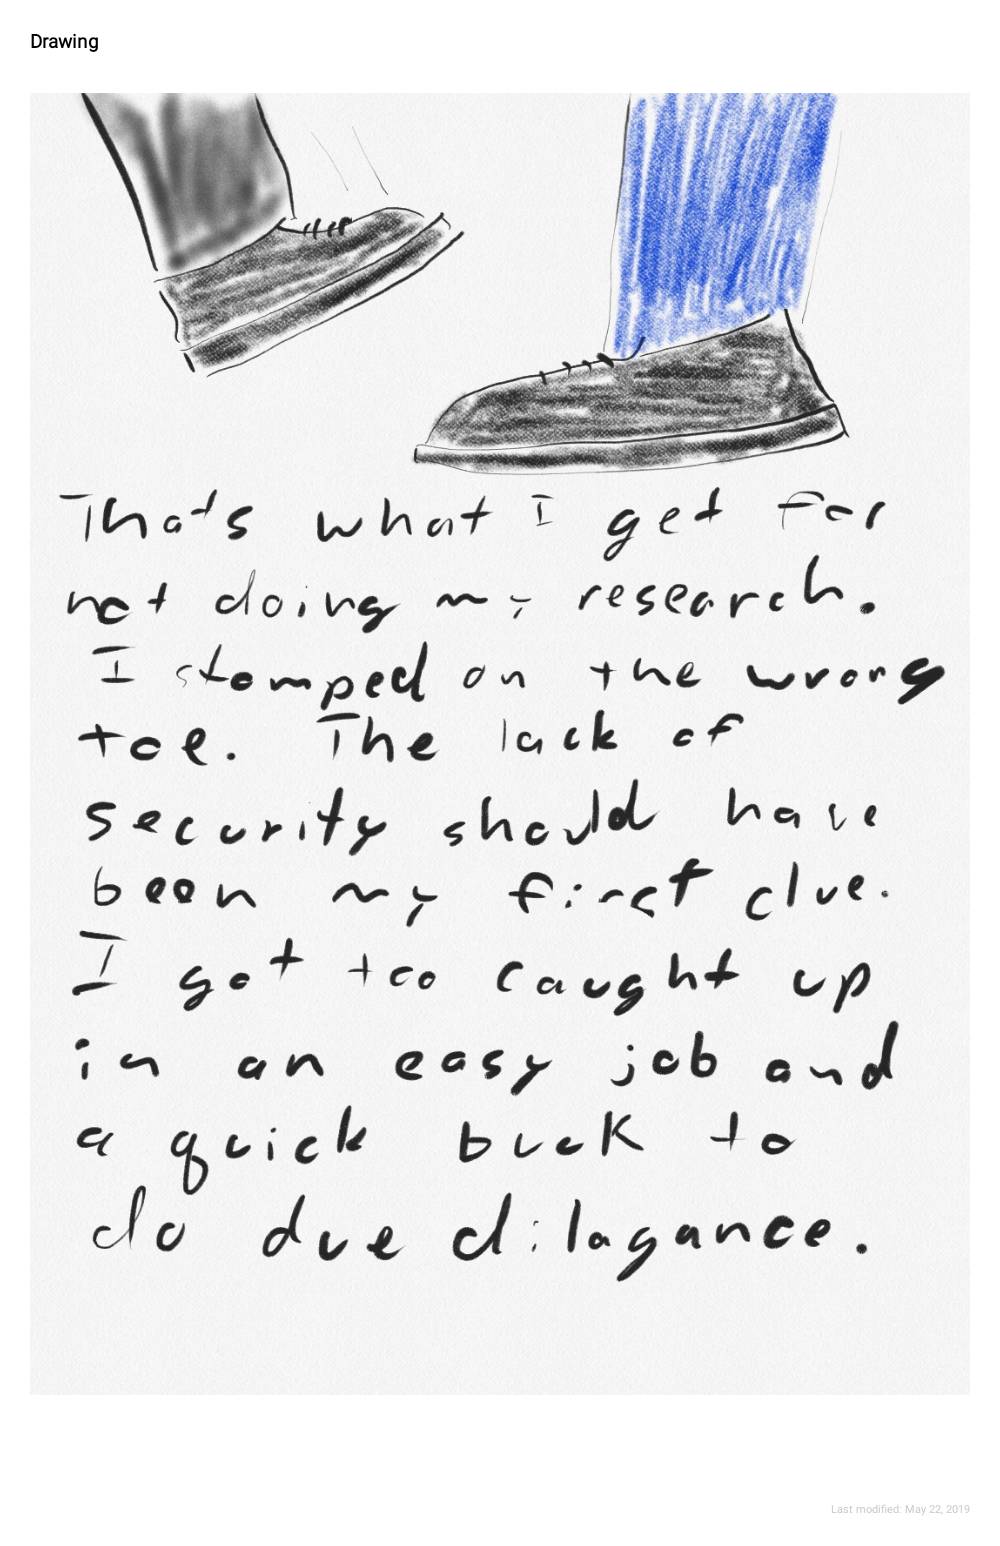 Drawing
That's what I get for
not doing my research.
I stomped on the wrong
toe. The lack of
security should have
been my first clue.
I got too caught up
in an easy job and
a quick buck to
do due dilagance.
Last modified: May 22, 2019